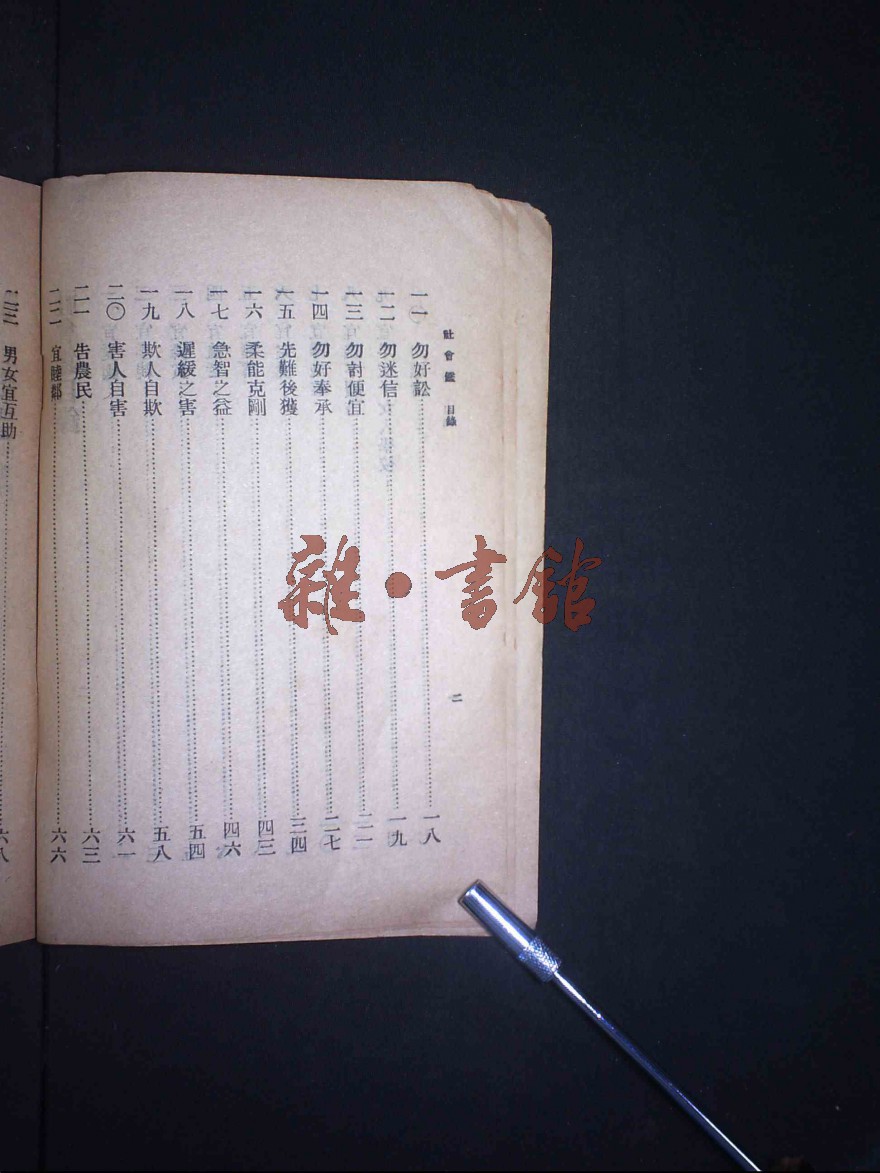 社會鑑 目錄
二
一一 勿好訟 一八
一二 勿迷信 一九
一三 勿討便宜 二一
一四 勿好奉承 二七
一五 先難後獲 三四
一六 柔能克剛 四三
一七 急智之益 四六
一八 遲緩之害 五四
一九 欺人自欺 五八
二〇 害人自害 六一
二一 告農民 六三
二二 宜睦鄰 六六
二三 男女宜互助 六八
雜·書館